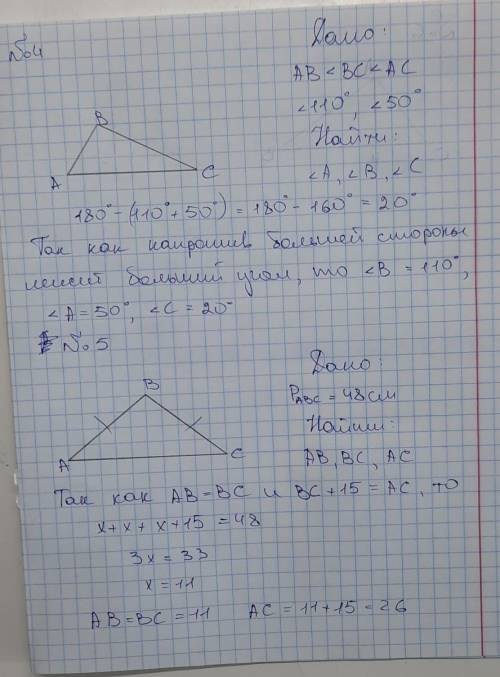 №4
Дано:
AB < BC < AC
<110°, <50°
Найти:
<A, <B, <C
B
A
C
180° - (110° + 50°) = 180° - 160° = 20°
Так как напротив большей стороны
лежит больший угол, то <B = 110°,
<A = 50°, <C = 20°
№5
Дано:
P ABC = 48 см
Найти:
AB, BC, AC
B
A
C
Так как AB = BC и BC + 15 = AC, то
x + x + x + 15 = 48
3x = 33
x = 11
AB = BC = 11 AC = 11 + 15 = 26